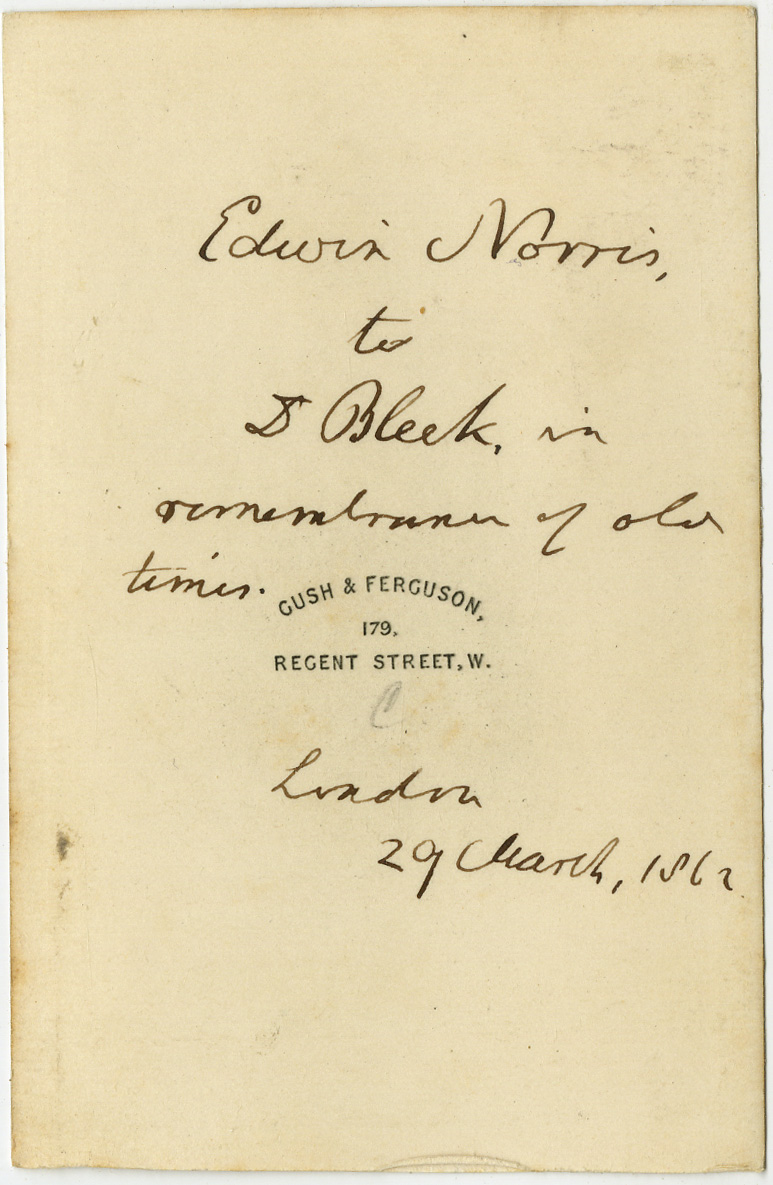 Edwin Norris,
to
Dr Bleek, in
remembrance of old
times.
GUSH & FERGUSON,
179,
REGENT STREET, W.
C
London
29 March, 1862